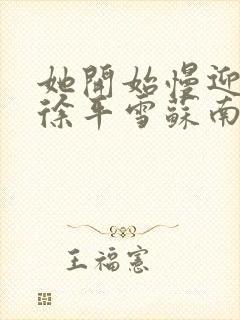 她開始慢迎
徐平雪蘇南
王福憲